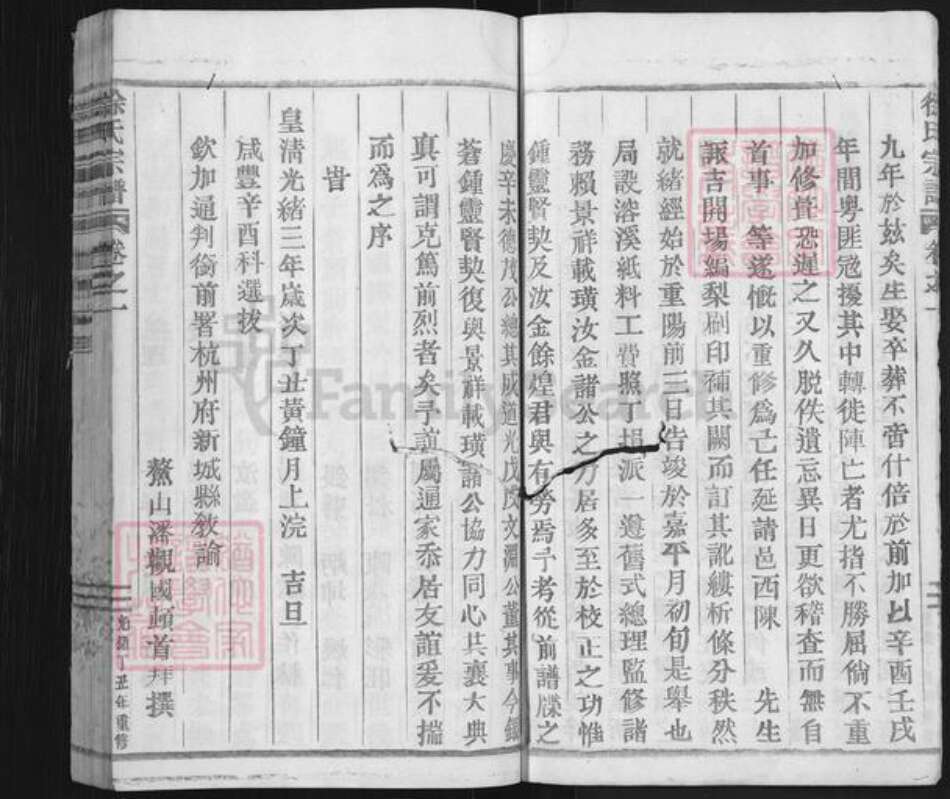 徐氏宗譜 卷之一
九年於玆矣生娶卒葬不啻什倍於前加以辛酉壬戌
年間粵匪冦擾其中轉徙陣亡者尤指不勝屈倘不重
加修葺恐遲之又久脫佚遺忘異日更欲稽查而無自
首事等遂慨以重修爲己任延請邑西陳 先生
諏吉開場編梨刷印補其闕而訂其訛縷析條分秩然
就緒經始於重陽前三日告竣於嘉平月初旬是舉也
局設溶溪紙料工費照丁捐派一遵舊式總理監修諸
務賴景祥載璜汝金諸公之力居多至於校正之功惟
鍾靈賢契及汝金餘煌君與有勞焉予考從前譜牒之
慶辛未德茂公總其成道光戊戌文淵公董其事今鏡
蒼鍾靈賢契復與景祥載璜諸公協力同心共襄大典
真可謂克篤前烈者矣予誼屬通家忝居友誼爰不揣
而爲之序
旹
皇淸光緒三年歲次丁丑黃鐘月上浣 吉旦
咸豐辛酉科選拔
欽加通判銜前署杭州府新城縣敎諭
鰲山潘觀國頓首拜撰
徐氏宗譜 卷之一
光緒丁丑年重修
FamilySearch